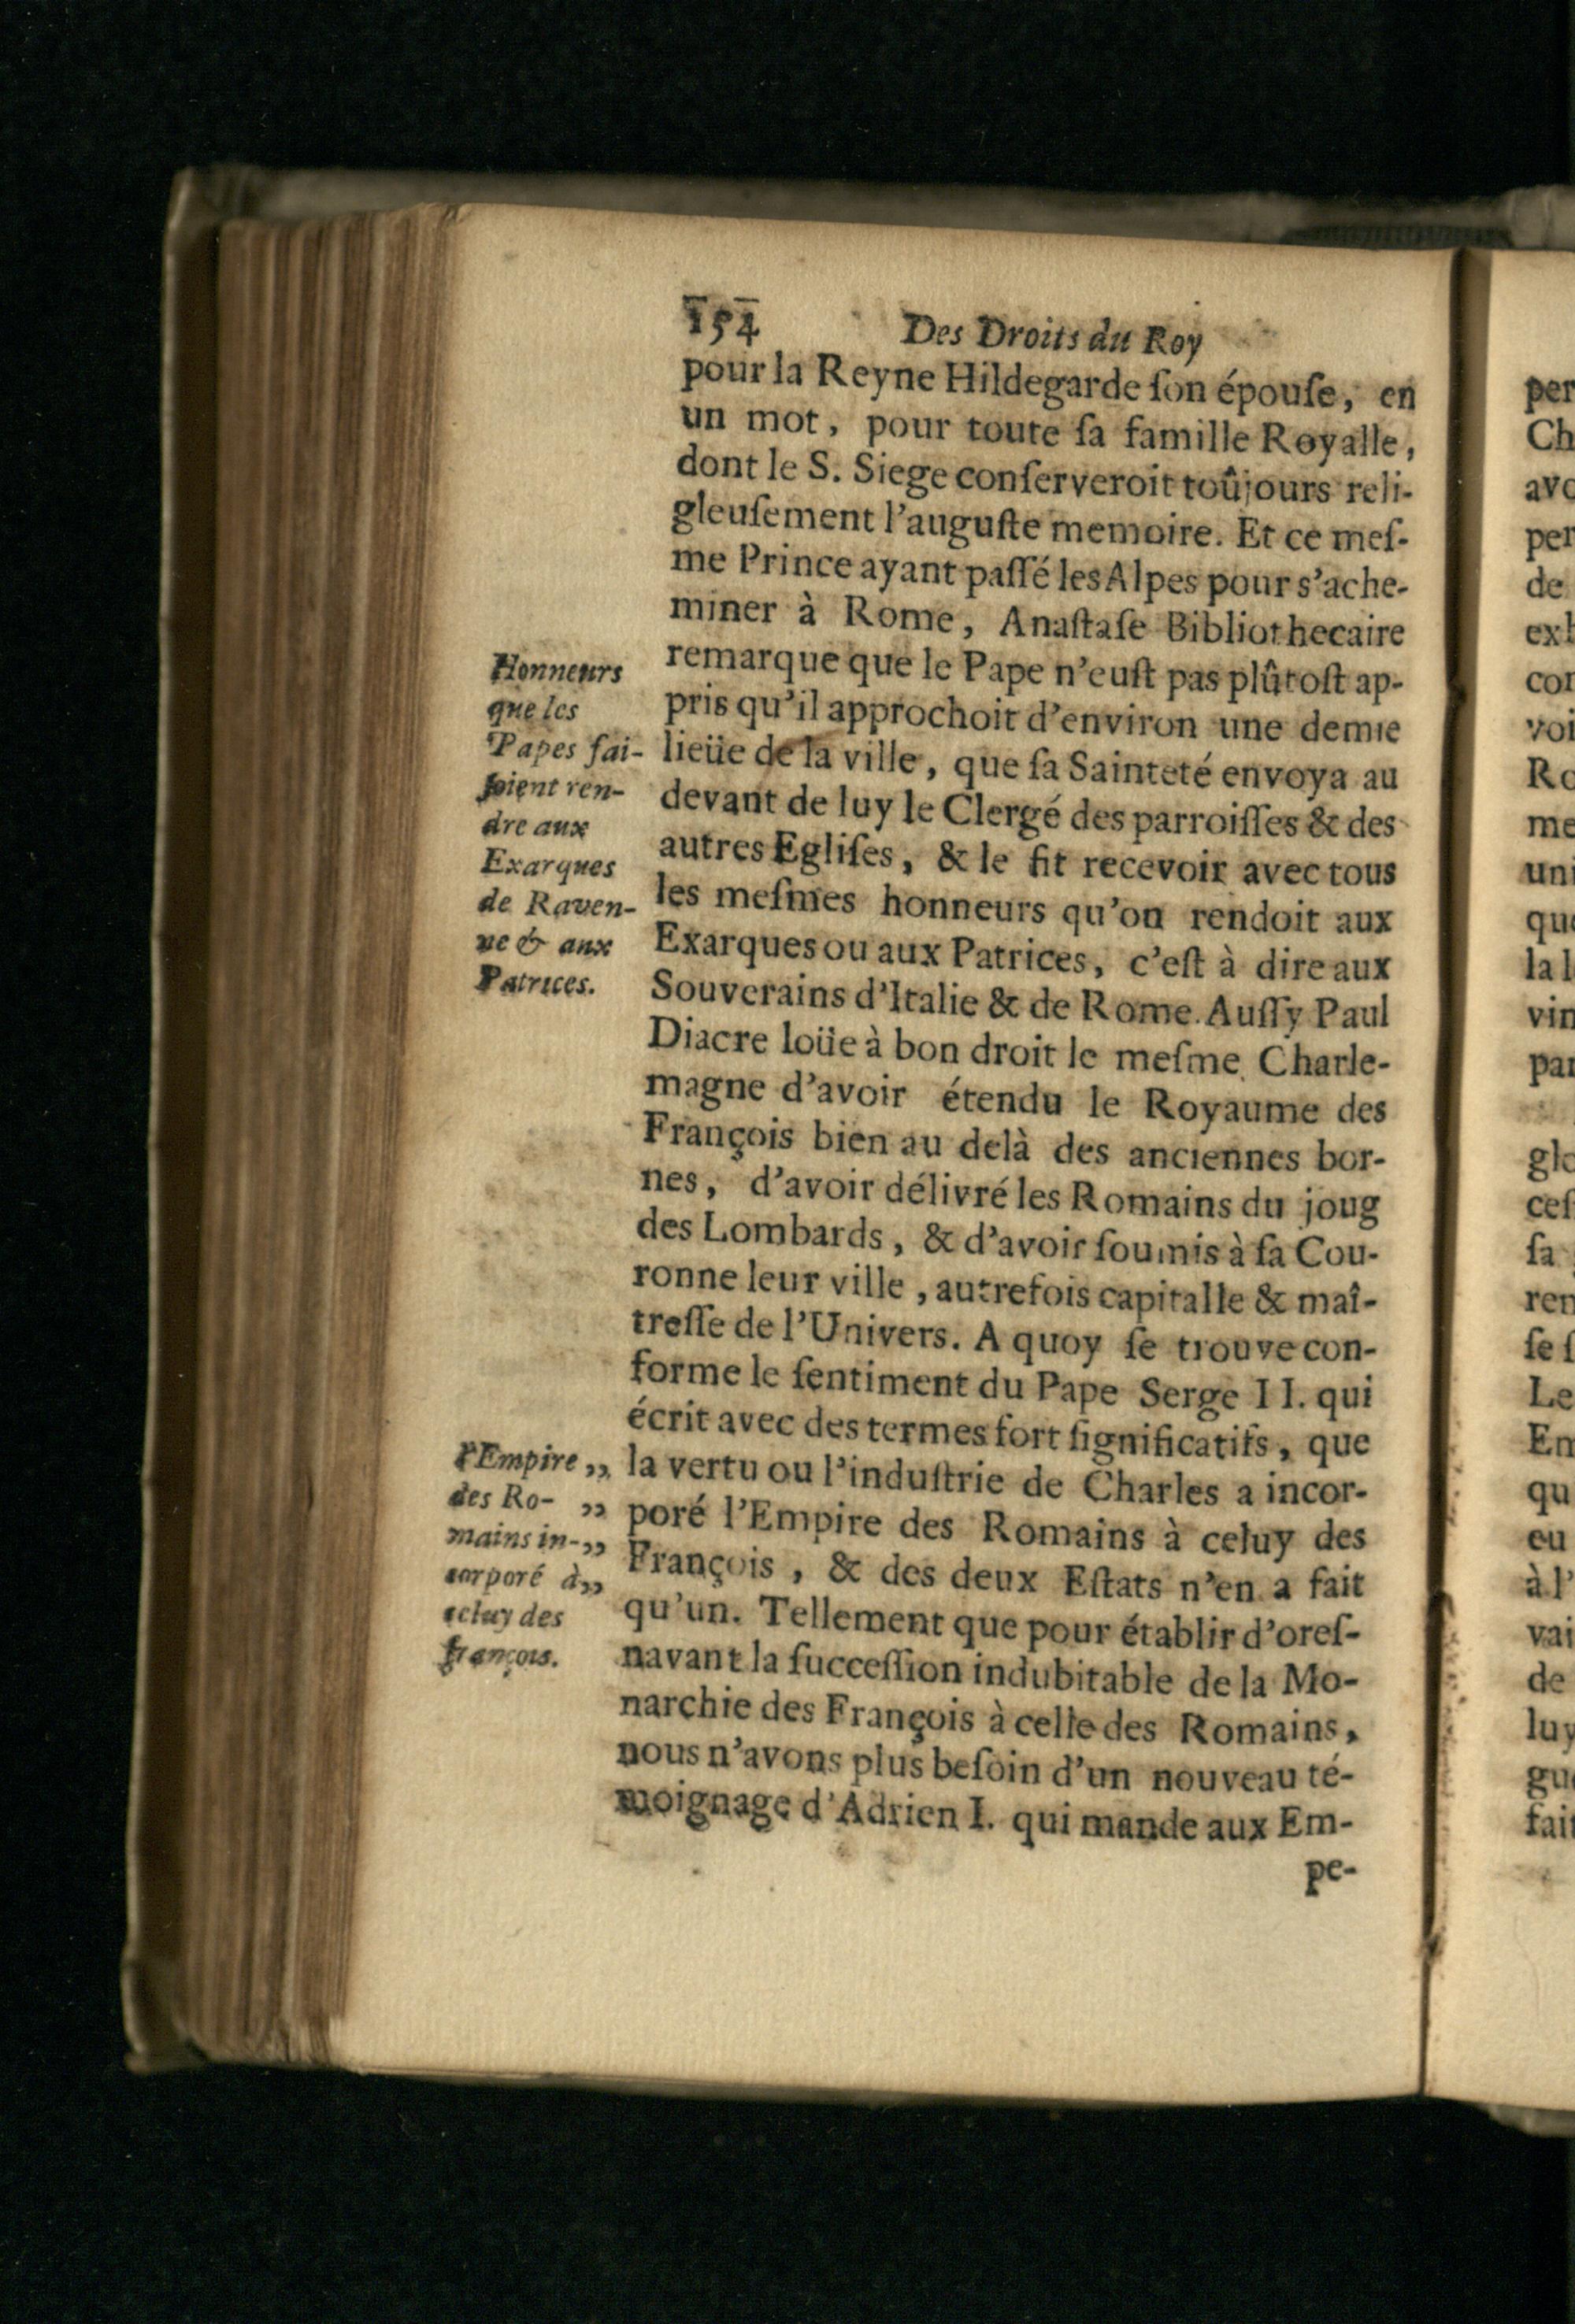 154 Des Droits du Roy
pour la Reyne Hildegarde ſon épouſe, en
un mot, pour toute ſa famille Royalle,
dont le S. Siege conſerveroit toûjours reli-
gieuſement l'auguſte memoire. Et ce meſ-
me Prince ayant paſſé les Alpes pour s'ache-
miner à Rome, Anaſtaſe Bibliothecaire
remarque que le Pape n'euſt pas plûtoſt ap-
pris qu'il approchoit d'environ une demie
lieüe de la ville, que ſa Sainteté envoya au
devant de luy le Clergé des parroiſſes & des
autres Egliſes, & le fit recevoir avec tous
les meſmes honneurs qu'on rendoit aux
Exarques ou aux Patrices, c'eſt à dire aux
Souverains d'Italie & de Rome. Auſſy Paul
Diacre loüe à bon droit le meſme Charle-
magne d'avoir étendu le Royaume des
François bien au delà des anciennes bor-
nes, d'avoir délivré les Romains du joug
des Lombards, & d'avoir ſoumis à ſa Cou-
ronne leur ville, autrefois capitalle & maî-
treſſe de l'Univers. A quoy ſe trouve con-
forme le ſentiment du Pape Serge II. qui
écrit avec des termes fort ſignificatifs, que
„ la vertu ou l'induſtrie de Charles a incor-
„ poré l'Empire des Romains à celuy des
„ François, & des deux Eſtats n'en a fait
„ qu'un. Tellement que pour établir d'oreſ-
navant la ſucceſſion indubitable de la Mo-
narchie des François à celle des Romains,
nous n'avons plus beſoin d'un nouveau té-
moignage d'Adrien I. qui mande aux Em-
pe-
Honneurs
que les
Papes fai-
ſoient ren-
dre aux
Exarques
de Raven-
ne & aux
Patrices.
l'Empire
des Ro-
mains in-
corporé à
celuy des
françois.
per
Ch
avo
per
de
exh
con
voi
Ro
me
uni
que
la l
vin
par
glo
ceſ
ſa
ren
ſe ſ
Le
Em
qu
eu
à l'
vai
de
luy
gu
fait